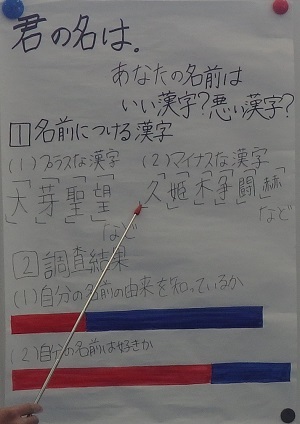 君の名は。
あなたの名前は
いい漢字?悪い漢字?
1 名前につける漢字
(1)プラスな漢字 (2)マイナスな漢字
「大」「芽」「聖」「望」など 「久」「姫」「木」「争」「闘」「赫」など
2 調査結果
(1)自分の名前の由来を知っているか
(2)自分の名前は好きか